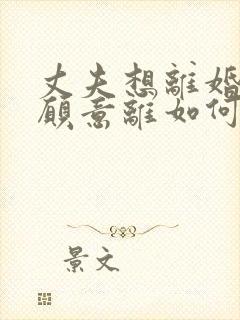 丈夫想離婚
願意離如何
景文